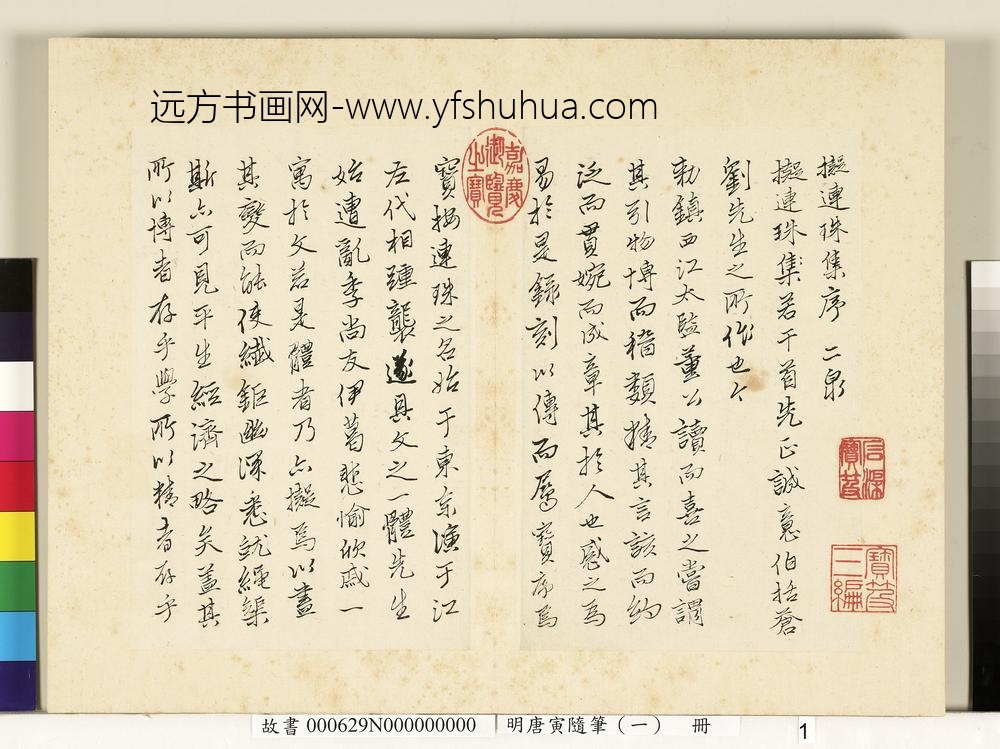 远方书画网-www.yfshuhua.com
擬連珠集序 二泉
擬連珠集若干首先正誠意伯括蒼
劉先生之所作也今
勅鎮西江太監董公讀而喜之嘗謂
其引物博而稽類精其言該而約
泛而貫婉而成章其於人也感之為
易於是錄刻以傳而屬寶序焉
寶按連珠之名始于東京演于江
左代相踵襲遂具文之一體先生
始遭亂季尚友伊葛愁愉欣戚一
寓於文若是體者乃亦擬焉以盡
其變而能使纖鉅幽深悉就繩槼
斯亦可見平生經濟之略矣蓋其
所以博者存乎學所以精者存乎
嘉慶御覽之寶
石渠寶笈
寶笈三編
故書 000629N000000000 明唐寅隨筆(一) 冊
1